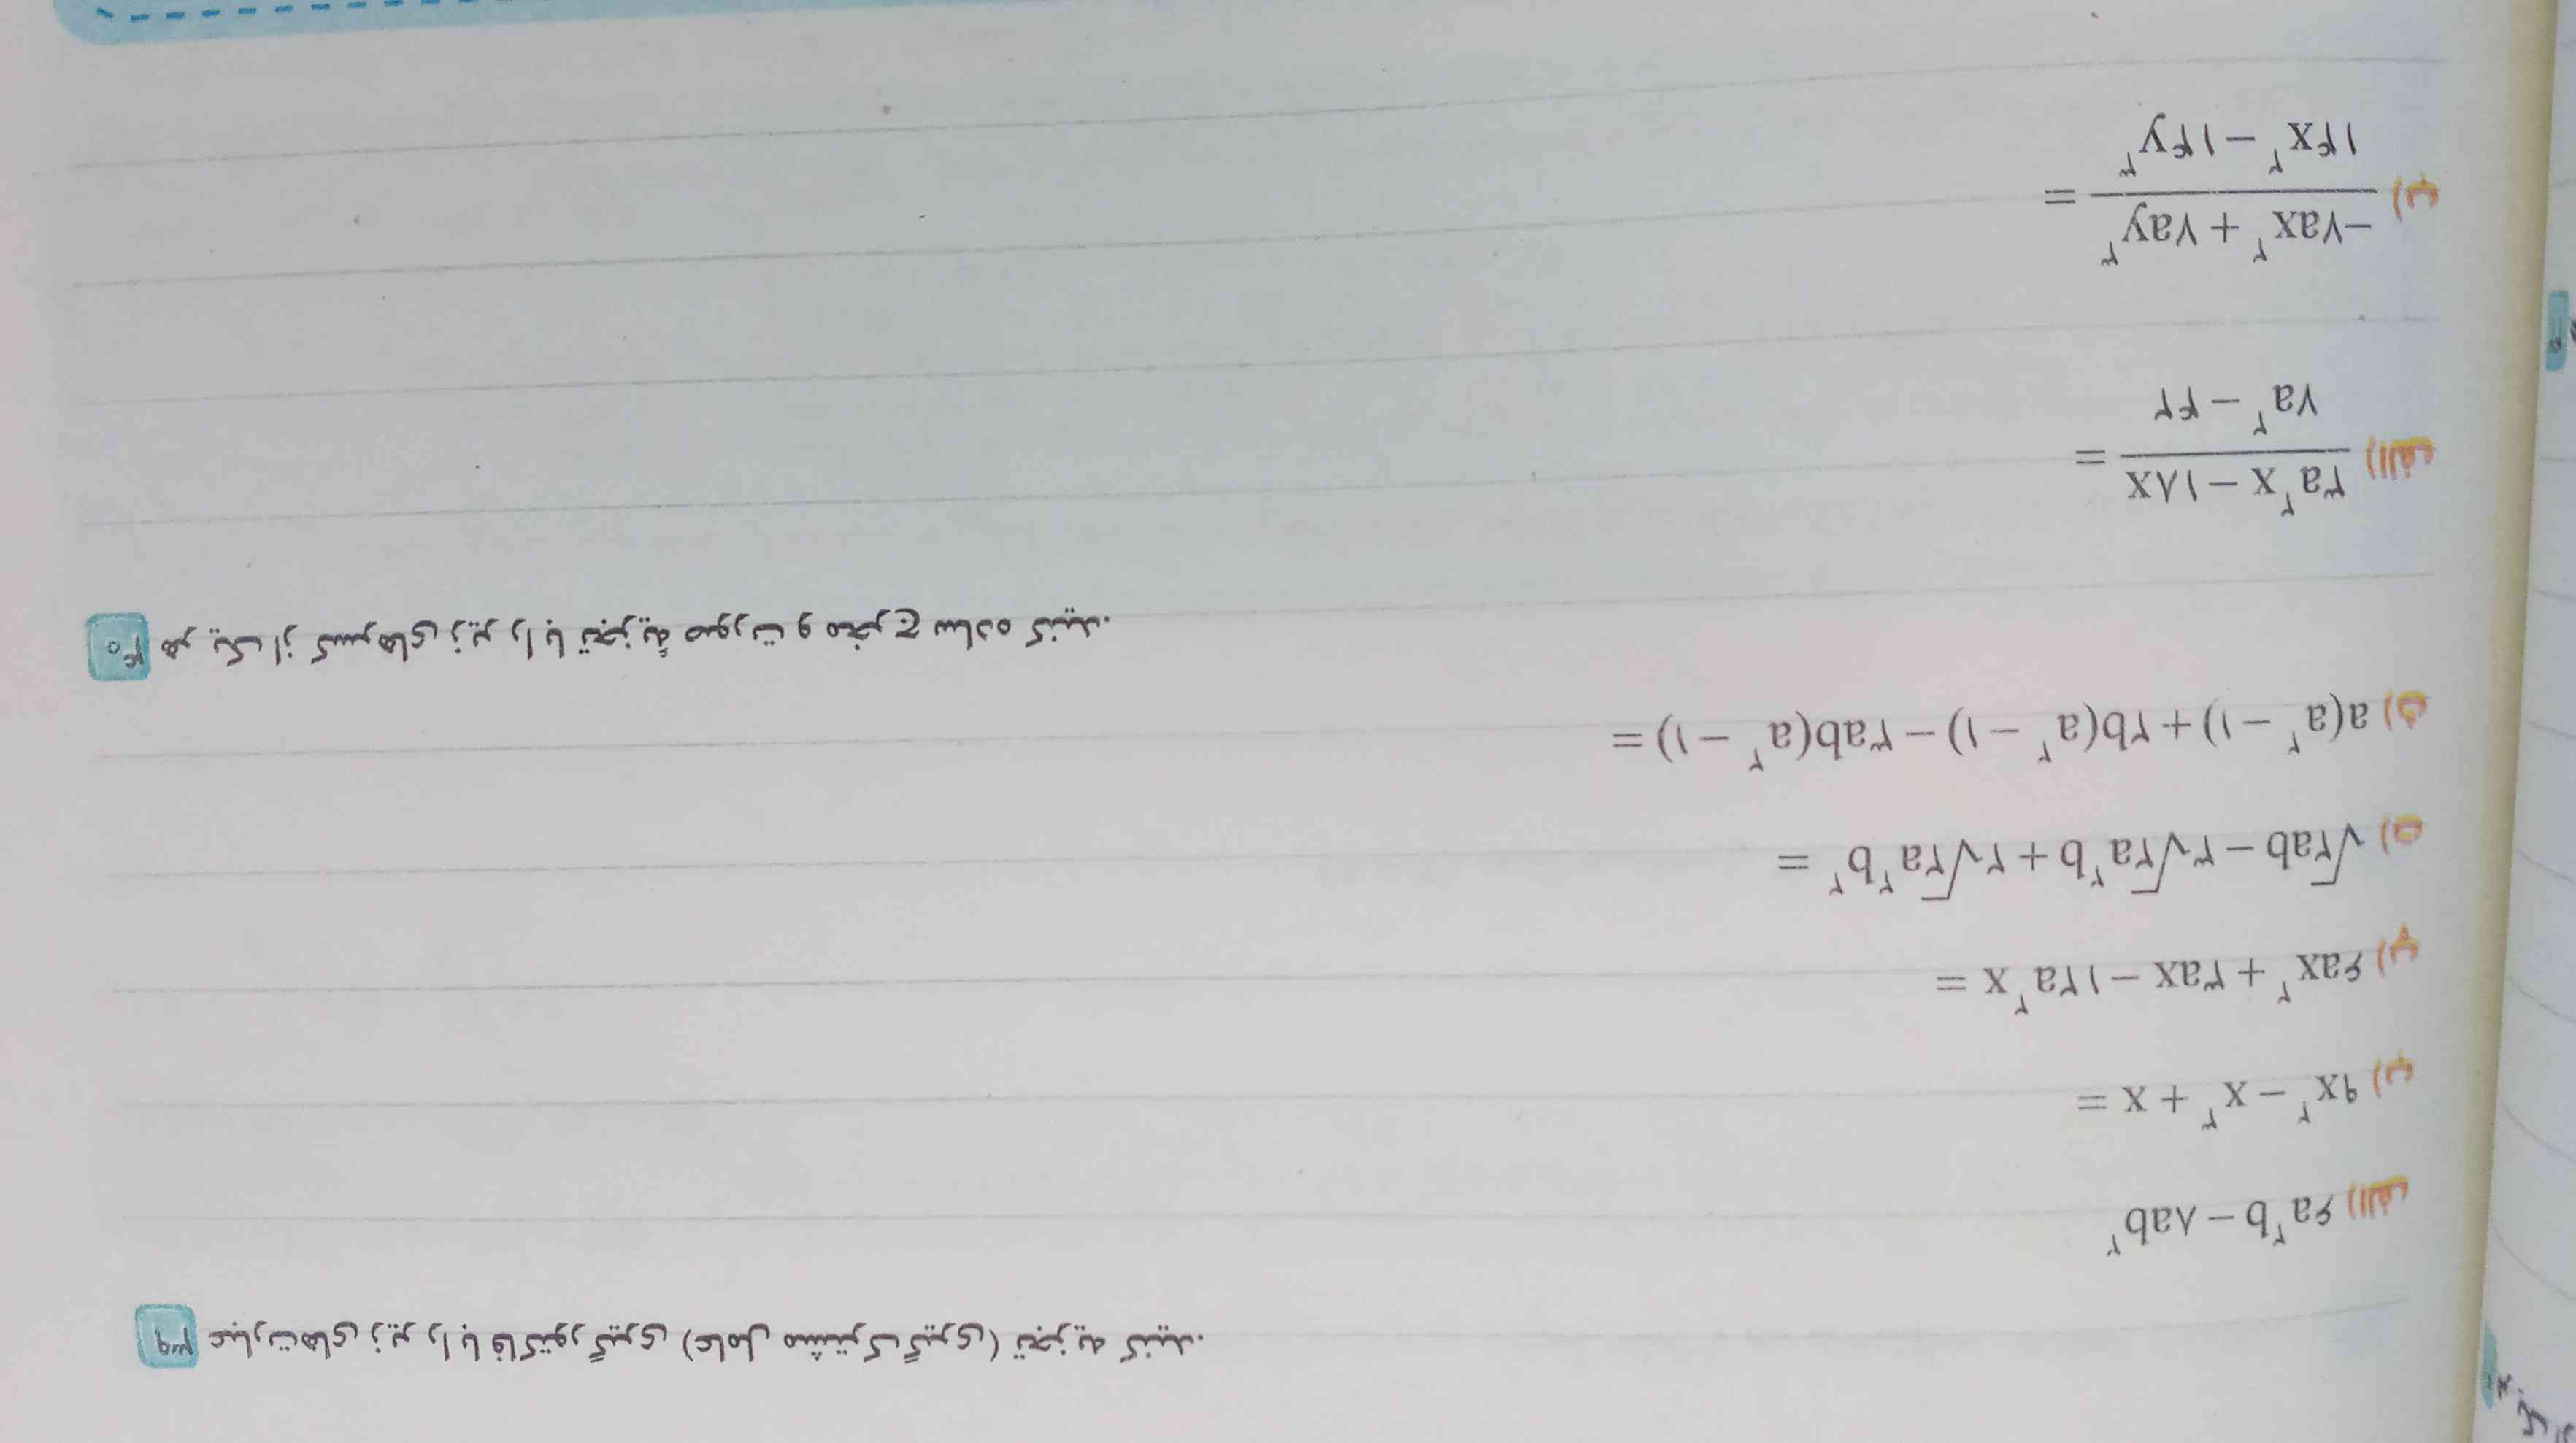 ۳۹ عبارت‌های زیر را با فاکتورگیری (عامل مشترک‌گیری) تجزیه کنید.
الف) ۶a²b − ۸ab²
ب) ۹x² − x² + x =
پ) ۶ax² + ۳ax − ۱۲a²x =
ت) √۲ab − ۳√۲a²b + ۲√۲a²b² =
ث) a(a² − ۱) + ۲b(a² − ۱) − ۳ab(a² − ۱) =
۴۰ هر یک از کسرهای زیر را با تجزیهٔ صورت و مخرج ساده کنید.
الف) (۳a²x − ۱۸x)/(۷a² − ۴۲) =
ب) (−۷ax² + ۷ay³)/(۱۴x² − ۱۴y³) =